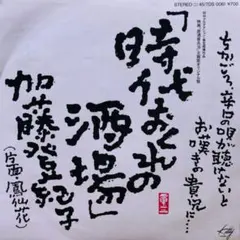 STEREO
ちかごろ、昔の唄が聴けないと
お嘆きの貴兄に……
「時代おくれの
酒場」
加藤登紀子
(片面・鳳仙花)